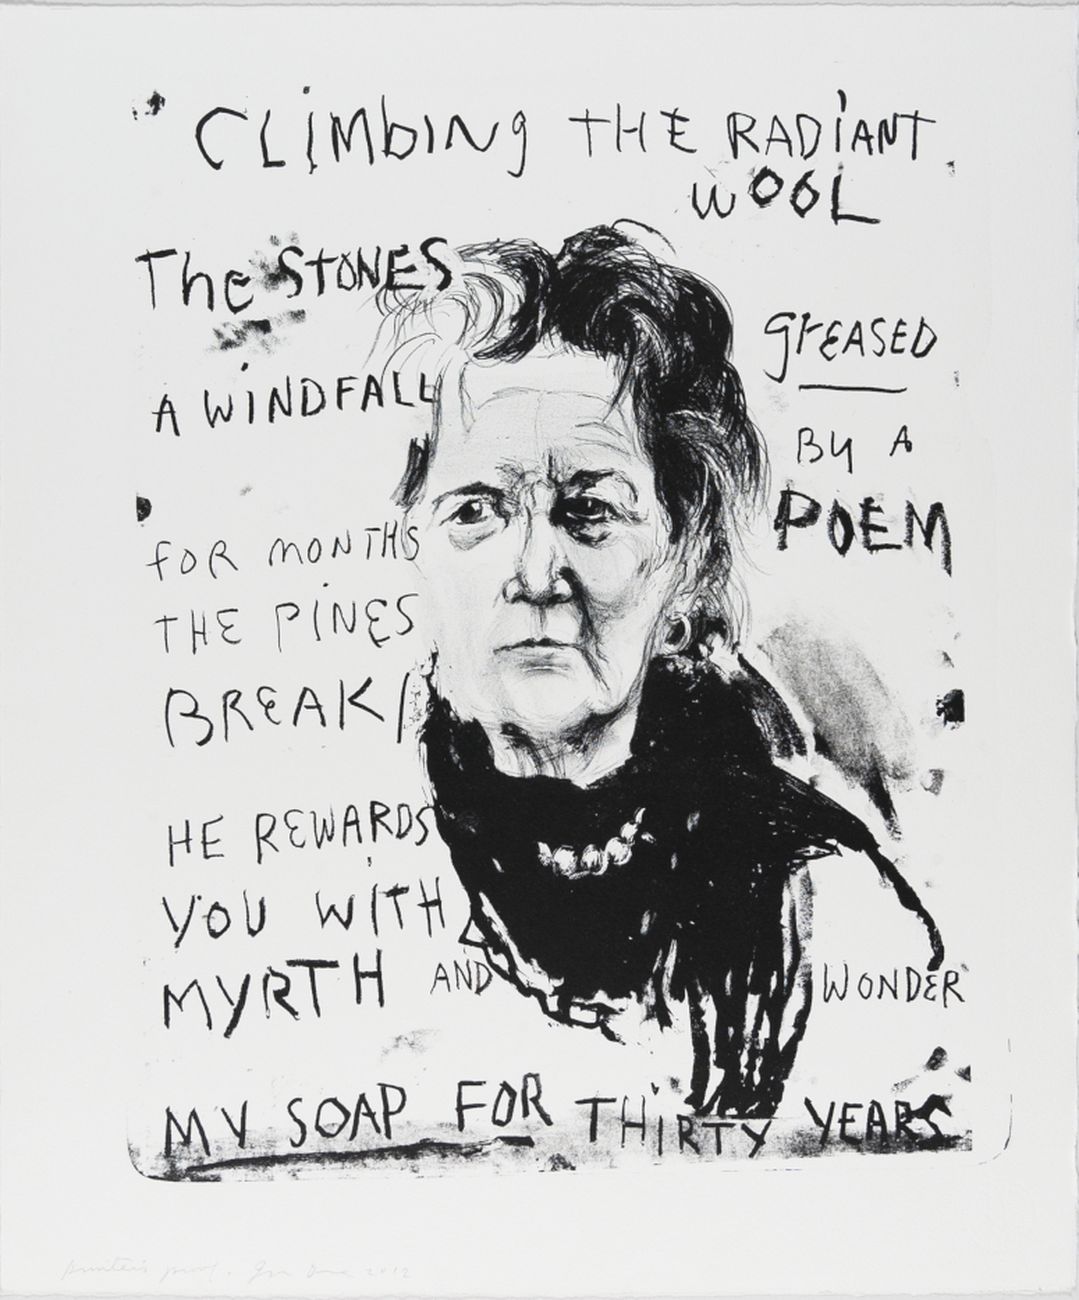 CLiMbING THE RADiANT
WOOL
The STONES
greASED
A WiNDFALL
By A
POEM
FOR MONTHS
THE PiNES
BREAK/
HE REWARDS
YOU WITH
MYRTH AND WONDER
MY SOAP FOR THiRTY YEARS
printer's proof. Jim Dine 2012